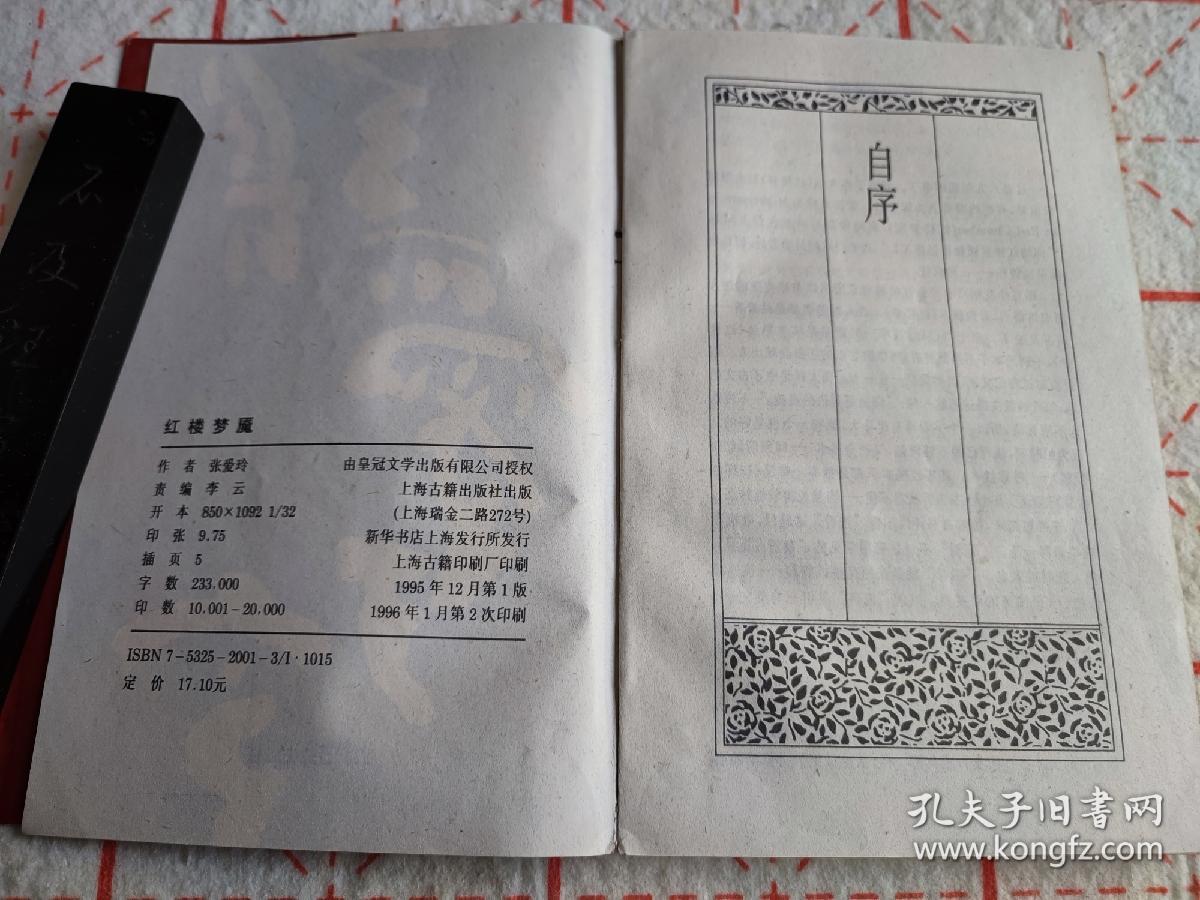 红楼梦魇
作者 张爱玲
责编 李云
开本 850×1092 1/32
印张 9.75
插页 5
字数 233,000
印数 10,001-20,000
由皇冠文学出版有限公司授权
上海古籍出版社出版
(上海瑞金二路272号)
新华书店上海发行所发行
上海古籍印刷厂印刷
1995年12月第1版
1996年1月第2次印刷
ISBN 7-5325-2001-3/I·1015
定价 17.10元
自序
孔夫子旧书网
www.kongfz.com